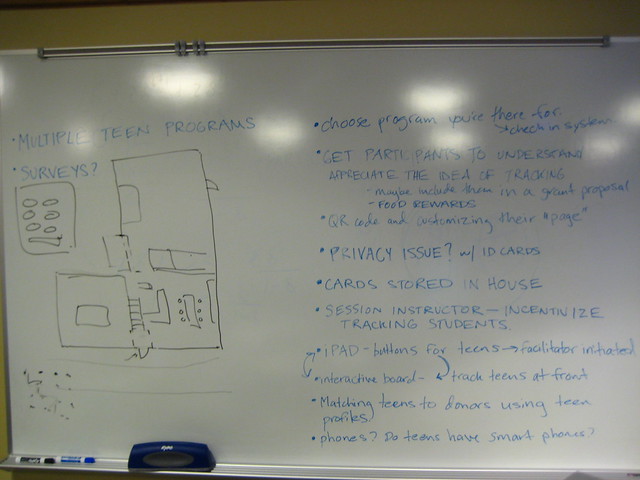 • MULTIPLE TEEN PROGRAMS
• SURVEYS?
• choose program you're there for.
→ check in system
• GET PARTICIPANTS TO UNDERSTAND
APPRECIATE THE IDEA OF TRACKING
- maybe include them in a grant proposal
- FOOD REWARDS
• QR code and customizing their "page"
• PRIVACY ISSUE? w/ ID CARDS
• CARDS STORED IN HOUSE
• SESSION INSTRUCTOR — INCENTIVIZE
TRACKING STUDENTS.
• iPAD - buttons for teens → facilitator initiated
• interactive board - track teens at front
• Matching teens to donors using teen
profiles
• phones? Do teens have smart phones?
expo